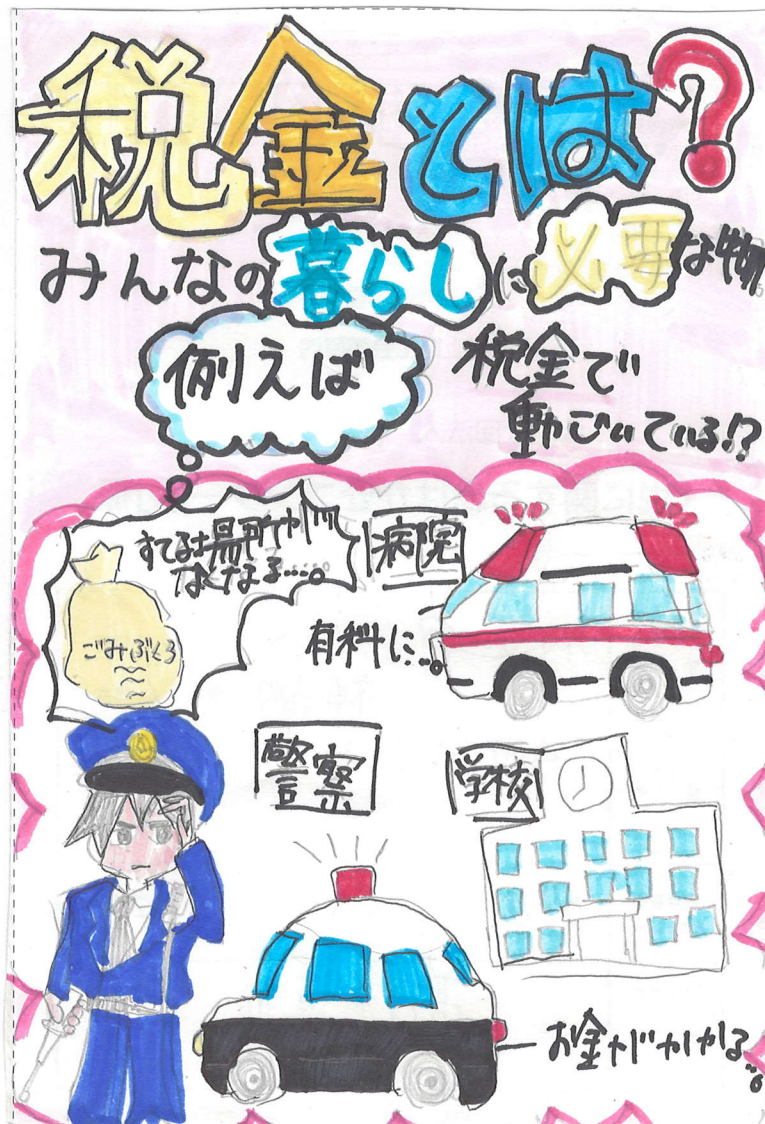 税金とは?
みんなの暮らしに必要な物。
例えば
税金で
動ごいている!?
すてるは場所が
なくなる…。
ごみぶくろ
病院
有料に…。
警察
学校
お金がかかる…。